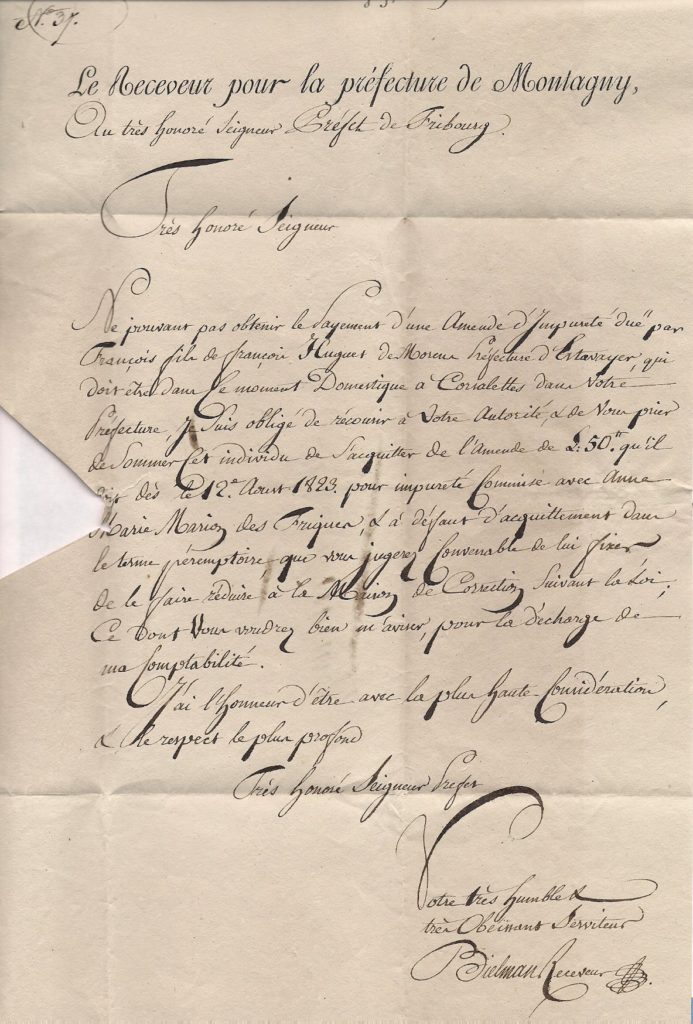 N.o 37.
Le Receveur pour la préfecture de Montagny,
Au très honoré Seigneur Préfet de Fribourg.
Très Honoré Seigneur
Ne pouvant pas obtenir le payement d'une Amende d'Impureté duë par
François fils de françois Huguet de Morens Préfecture d'Estavayer, qui
doit être dans ce moment Domestique à Corsalettes dans Votre
Préfecture, je suis obligé de récourir à Votre Autorité, & de Vous prier
de Sommer cet individu de s'acquitter de l'Amende de L: 50.. qu'il
doit dès le 12.e Aout 1823. pour impureté Commise avec Anne
Marie Marion des Friques, & à défaut d'acquittement dans
le terme péremptoire, que vous jugerez Convenable de lui fixer
de le faire réduire à la Maison de Correction Suivant la Loi;
Ce dont Vous voudrez bien m'aviser, pour la décharge de
ma Comptabilité.
J'ai l'Honneur d'être avec la plus haute Considération,
& le respect le plus profond
Très Honoré Seigneur Prefet
Votre très humble &
très Obeissant Serviteur
Bielman Receveur